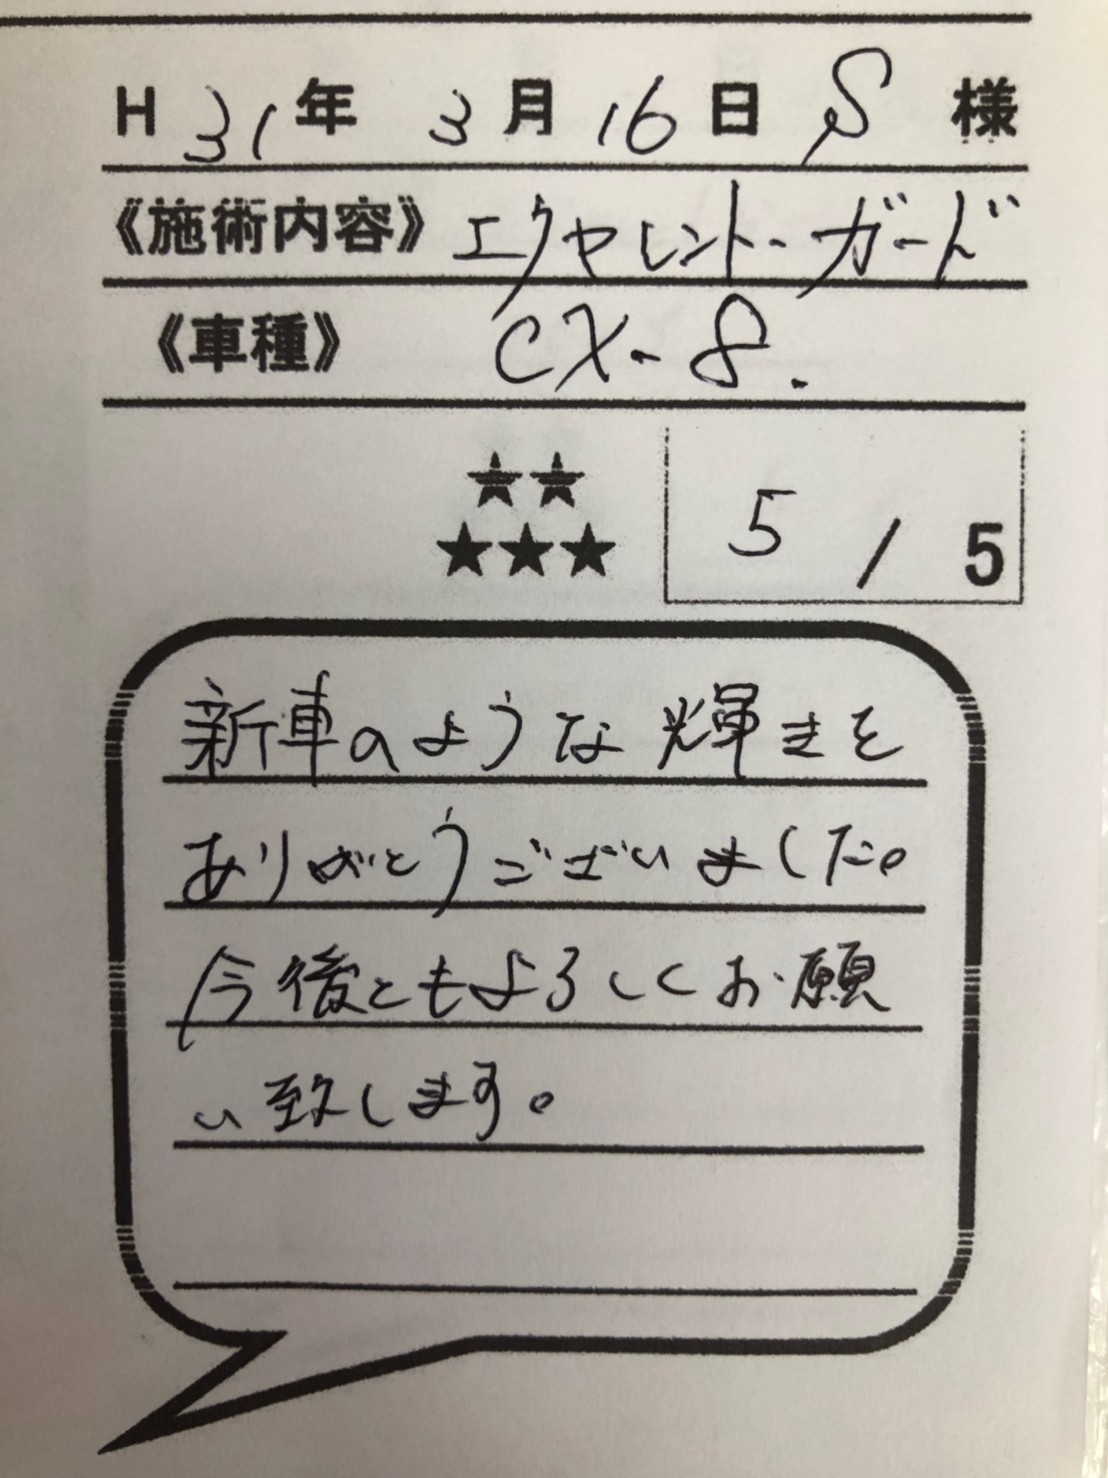 H 31年 3月 16日 S 様
《施術内容》エクセレント・ガード
《車種》CX-8.
★★
★★★ 5 / 5
新車のような輝きを
ありがとうございました。
今後ともよろしくお願
い致します。